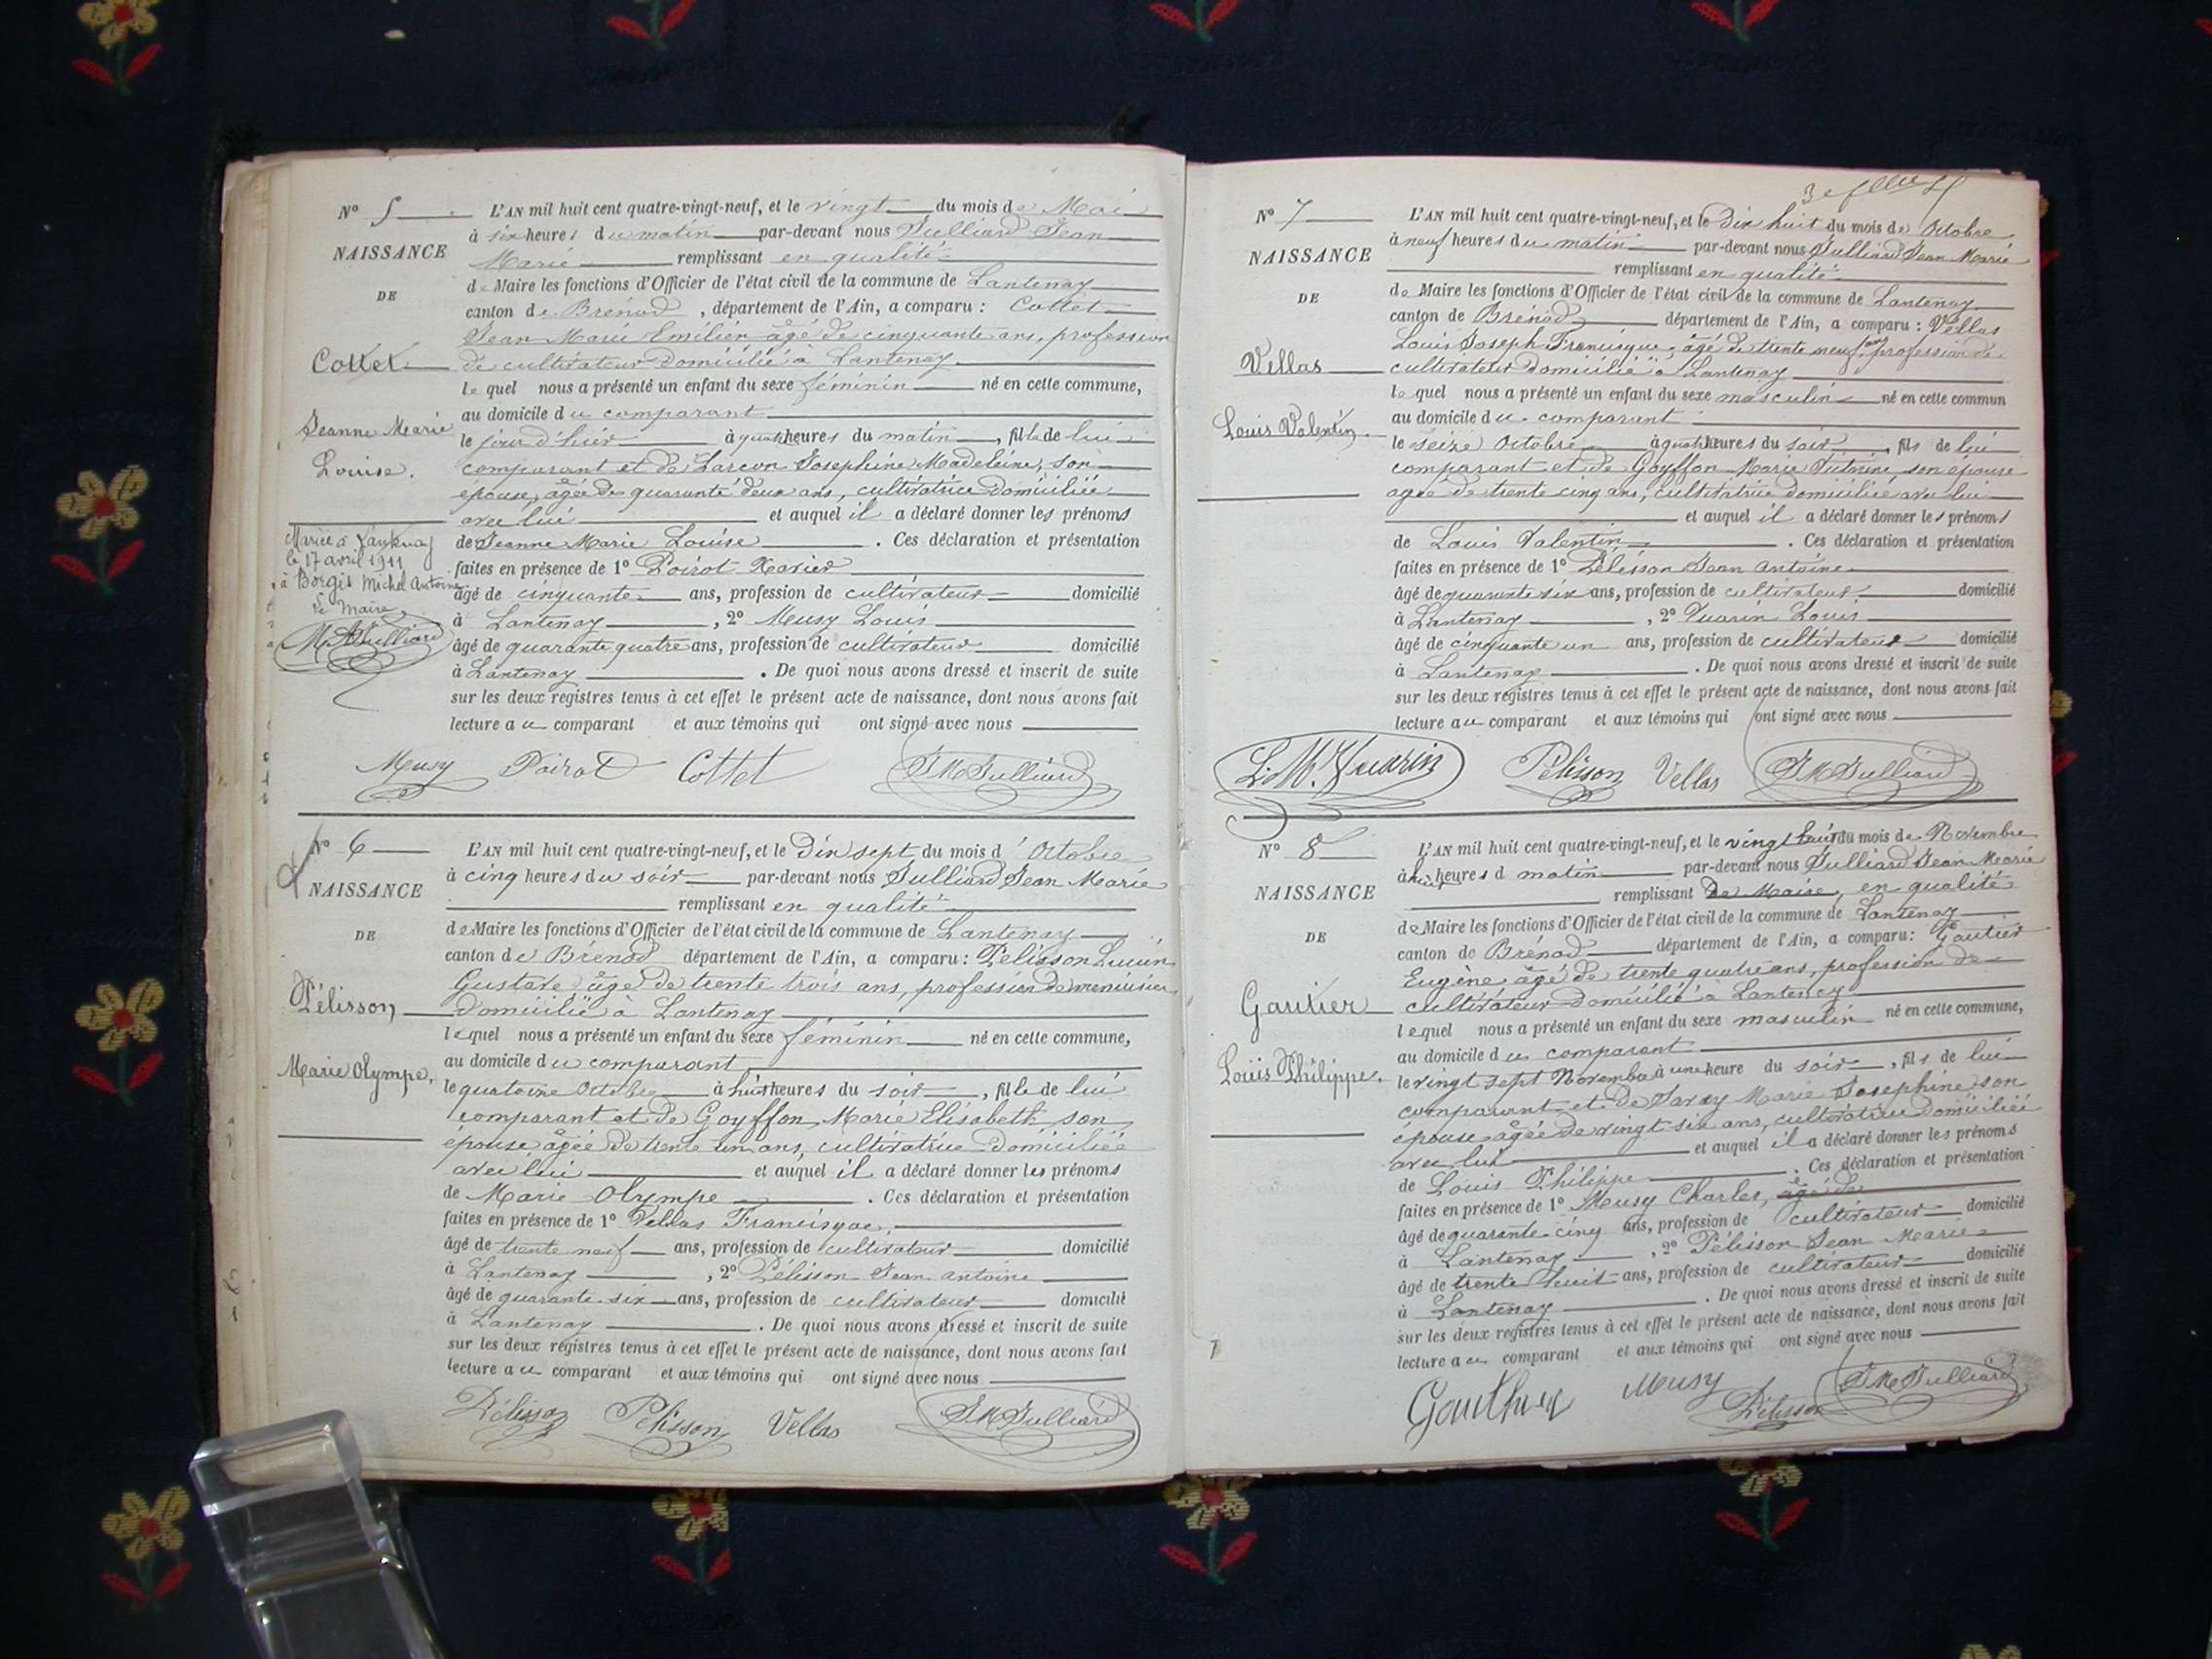 N° 5
NAISSANCE
DE
Cottet
Jeanne Marie
Louise.
Mariée à Lantenay
le 17 avril 1911
à Borgis Michel Antoine
Le Maire
L'AN mil huit cent quatre-vingt-neuf, et le vingt du mois de Mai
à six heures du matin par-devant nous Julliard Jean
Marie remplissant en qualité
de Maire les fonctions d'Officier de l'état civil de la commune de Lantenay
canton de Brénod, département de l'Ain, a comparu : Cottet
Jean Marie Emilien âgé de cinquante ans, profession
de cultivateur domicilié à Lantenay
lequel nous a présenté un enfant du sexe féminin né en cette commune,
au domicile du comparant
le jour d'hier à quatre heures du matin, fille de lui
comparant et de Larcon Josephine Madeleine, son
épouse, âgée de quarante deux ans, cultivatrice domiciliée
avec lui et auquel il a déclaré donner les prénoms
de Jeanne Marie Louise. Ces déclaration et présentation
faites en présence de 1° Poirot Xavier
âgé de cinquante ans, profession de cultivateur domicilié
à Lantenay, 2° Meusy Louis
âgé de quarante quatre ans, profession de cultivateur domicilié
à Lantenay. De quoi nous avons dressé et inscrit de suite
sur les deux registres tenus à cet effet le présent acte de naissance, dont nous avons fait
lecture au comparant et aux témoins qui ont signé avec nous
Meusy Poirot Cottet JM Julliard
N° 6
NAISSANCE
DE
Pélisson
Marie Olympe.
L'AN mil huit cent quatre-vingt-neuf, et le Dix sept du mois d'Octobre
à cinq heures du soir par-devant nous Julliard Jean Marie
remplissant en qualité
de Maire les fonctions d'Officier de l'état civil de la commune de Lantenay
canton de Brénod département de l'Ain, a comparu : Pélisson Lucien
Gustave âgé de trente trois ans, profession de menuisier
domicilié à Lantenay
lequel nous a présenté un enfant du sexe féminin né en cette commune,
au domicile du comparant
le quatorze Octobre à huit heures du soir, fille de lui
comparant et de Goyffon Marie Elisabeth son
épouse âgée de trente un ans, cultivatrice domiciliée
avec lui et auquel il a déclaré donner les prénoms
de Marie Olympe. Ces déclaration et présentation
faites en présence de 1° Vellas Francisque,
âgé de trente neuf ans, profession de cultivateur domicilié
à Lantenay, 2° Pélisson Jean Antoine
âgé de quarante six ans, profession de cultivateur domicilié
à Lantenay. De quoi nous avons dressé et inscrit de suite
sur les deux registres tenus à cet effet le présent acte de naissance, dont nous avons fait
lecture au comparant et aux témoins qui ont signé avec nous
Pélisson Pélisson Vellas JM Julliard
N° 7
NAISSANCE
DE
Vellas
Louis Valentin.
L'AN mil huit cent quatre-vingt-neuf, et le Dix huit du mois de Octobre
à neuf heures du matin par-devant nous Julliard Jean Marie
remplissant en qualité
de Maire les fonctions d'Officier de l'état civil de la commune de Lantenay
canton de Brénod département de l'Ain, a comparu : Vellas
Louis Joseph Francisque, âgé de trente neuf ans profession de
cultivateur domicilié à Lantenay
lequel nous a présenté un enfant du sexe masculin né en cette commun
au domicile du comparant
le seize Octobre à quatre heures du soir, fils de lui
comparant et de Goyffon Marie Victorine son épouse
agée de trente cinq ans, cultivatrice domiciliée avec lui
et auquel il a déclaré donner les prénoms
de Louis Valentin. Ces déclaration et présentation
faites en présence de 1° Pélisson Jean Antoine
âgé de quarante six ans, profession de cultivateur domicilié
à Lantenay, 2° Juarin Louis
âgé de cinquante un ans, profession de cultivateur domicilié
à Lantenay. De quoi nous avons dressé et inscrit de suite
sur les deux registres tenus à cet effet le présent acte de naissance, dont nous avons fait
lecture au comparant et aux témoins qui ont signé avec nous
L. M. Juarin Pélisson Vellas JM Julliard
N° 8
NAISSANCE
DE
Gautier
Louis Philippe.
L'AN mil huit cent quatre-vingt-neuf, et le vingt huit du mois de Novembre
à huit heures d matin par-devant nous Julliard Jean Marie
remplissant de Maire, en qualité
de Maire les fonctions d'Officier de l'état civil de la commune de Lantenay
canton de Brénod département de l'Ain, a comparu : Gautier
Eugène âgé de trente quatre ans, profession de
cultivateur domicilié à Lantenay
lequel nous a présenté un enfant du sexe masculin né en cette commune,
au domicile du comparant
le vingt sept Novembre à une heure du soir, fils de lui
comparant et de Savay Marie Josephine son
épouse agée de vingt six ans, cultivatrice domiciliée
avec lui et auquel il a déclaré donner les prénoms
de Louis Philippe. Ces déclaration et présentation
faites en présence de 1° Meusy Charles, âgé de
âgé de quarante cinq ans, profession de cultivateur domicilié
à Lantenay, 2° Pélisson Jean Marie
âgé de trente huit ans, profession de cultivateur domicilié
à Lantenay. De quoi nous avons dressé et inscrit de suite
sur les deux registres tenus à cet effet le présent acte de naissance, dont nous avons fait
lecture au comparant et aux témoins qui ont signé avec nous
Gauthier Meusy Pélisson JM Julliard